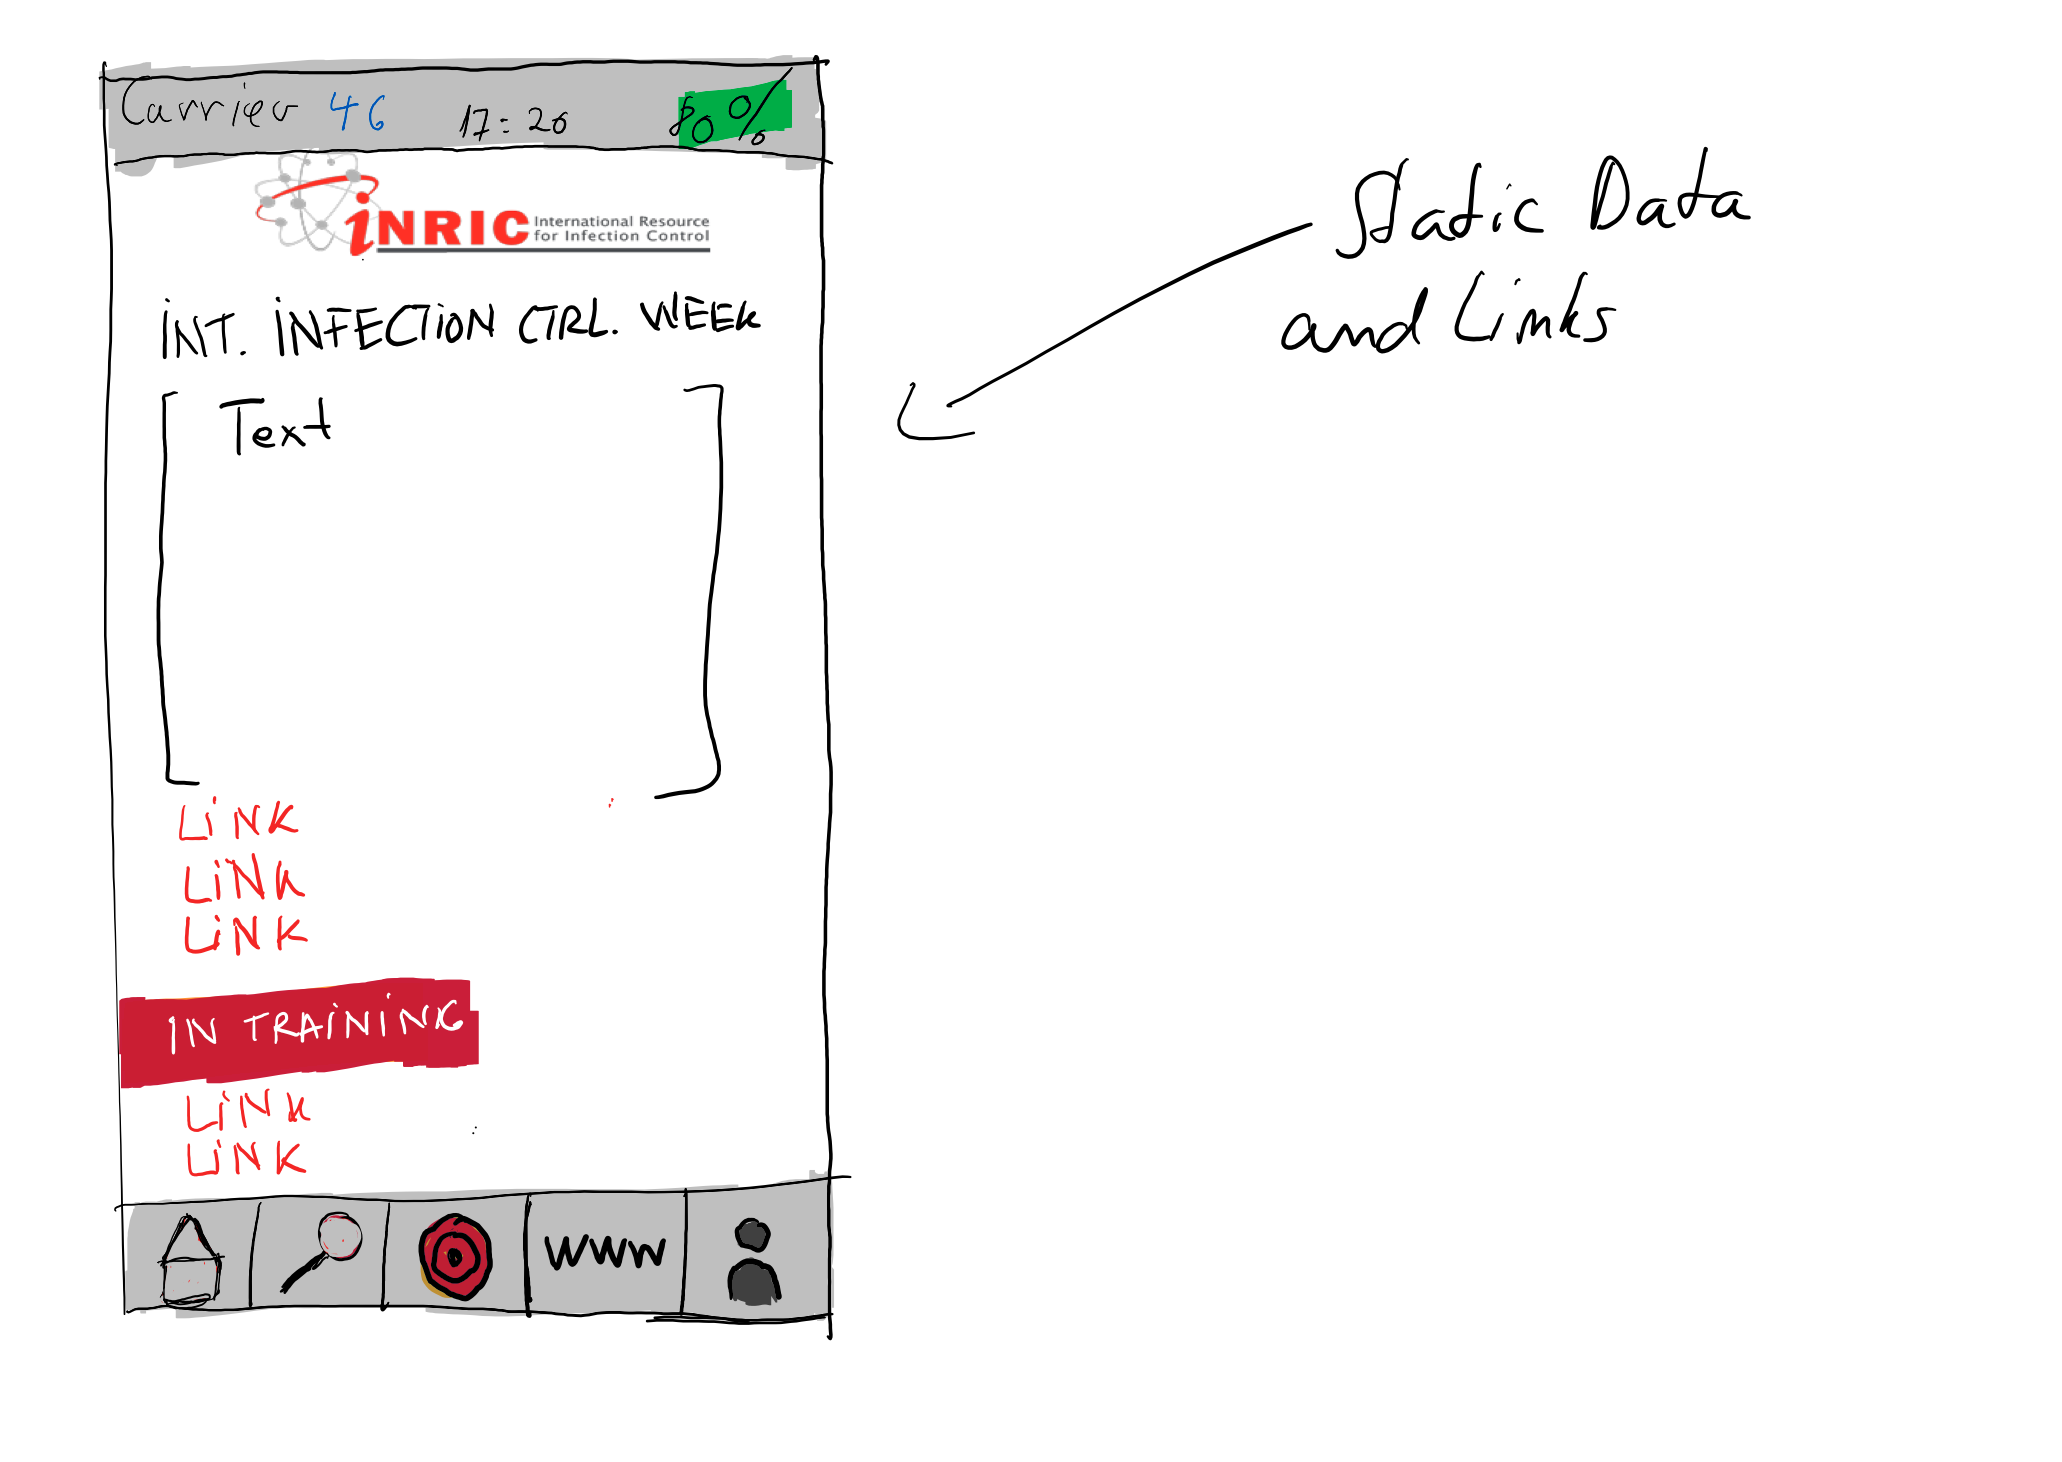 Carrier 4G 17:20 80%
iNRIC International Resource
for Infection Control
INT. INFECTION CTRL. WEEK
Text
LINK
LINK
LINK
IN TRAINING
LINK
LINK
WWW
Static Data
and Links